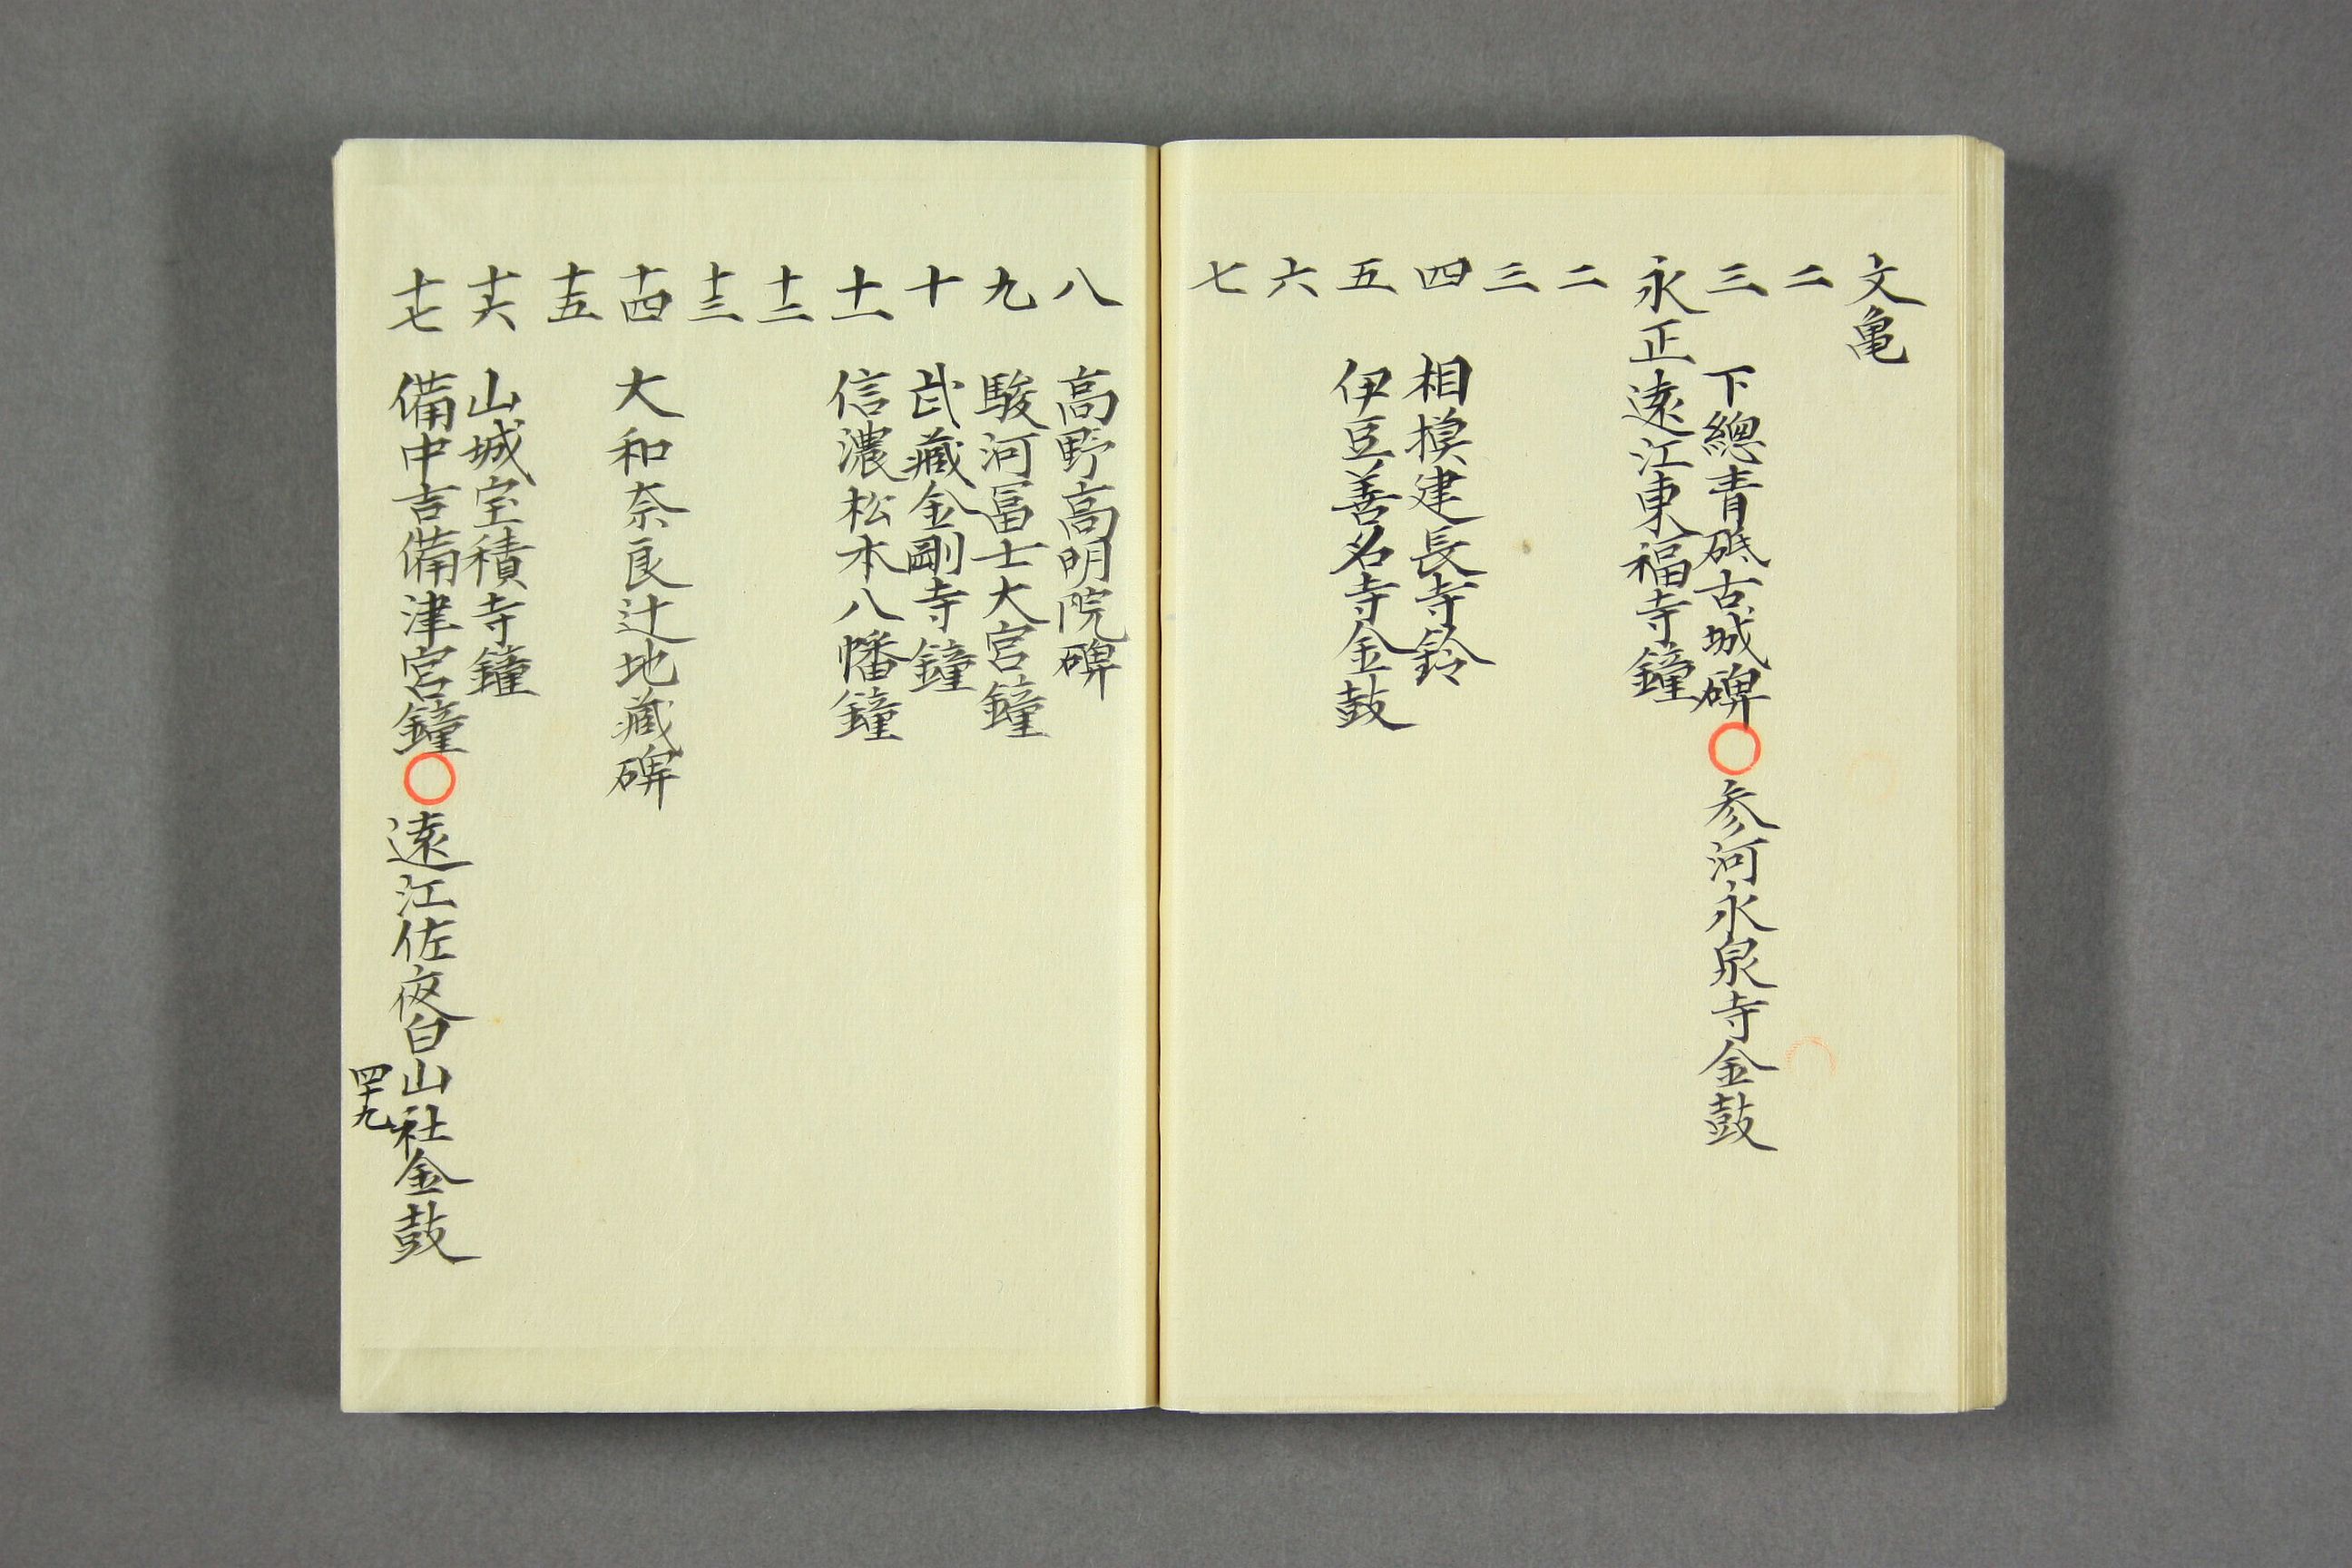 文亀
二
三 下總青砥古城碑○参河永泉寺金鼓
永正遠江東福寺鐘
二
三
四 相摸建長寺鈴
五 伊豆善名寺金鼓
六
七
八 高野高明院碑
九 駿河冨士大宮鐘
十 武藏金剛寺鐘
十一 信濃松本八幡鐘
十二
十三
十四 大和奈良辻地藏碑
十五
十六 山城宝積寺鐘
十七 備中吉備津宮鐘○遠江佐夜白山社金鼓
四十九